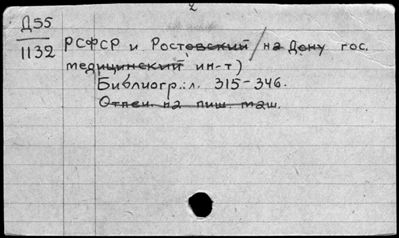 2
Д55
1132
РСФСР и Ростовский / на Дону гос.
медицинский ин-т)
Библиогр.: л. 315-346.
Отпеч. на пиш. маш.